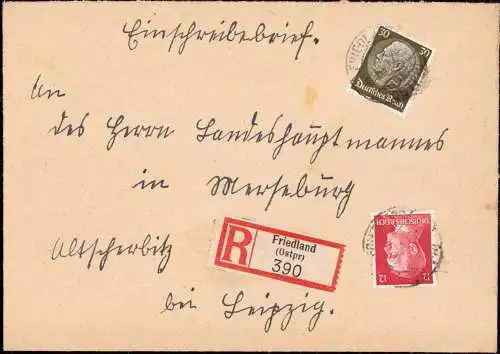 Einschreibebrief.
30 30
Deutsches Reich
An
des Herrn Landeshauptmannes
in Merseburg
R Friedland
(Ostpr)
390
DEUTSCHES REICH
12 12
Altscherbitz
bei Leipzig.